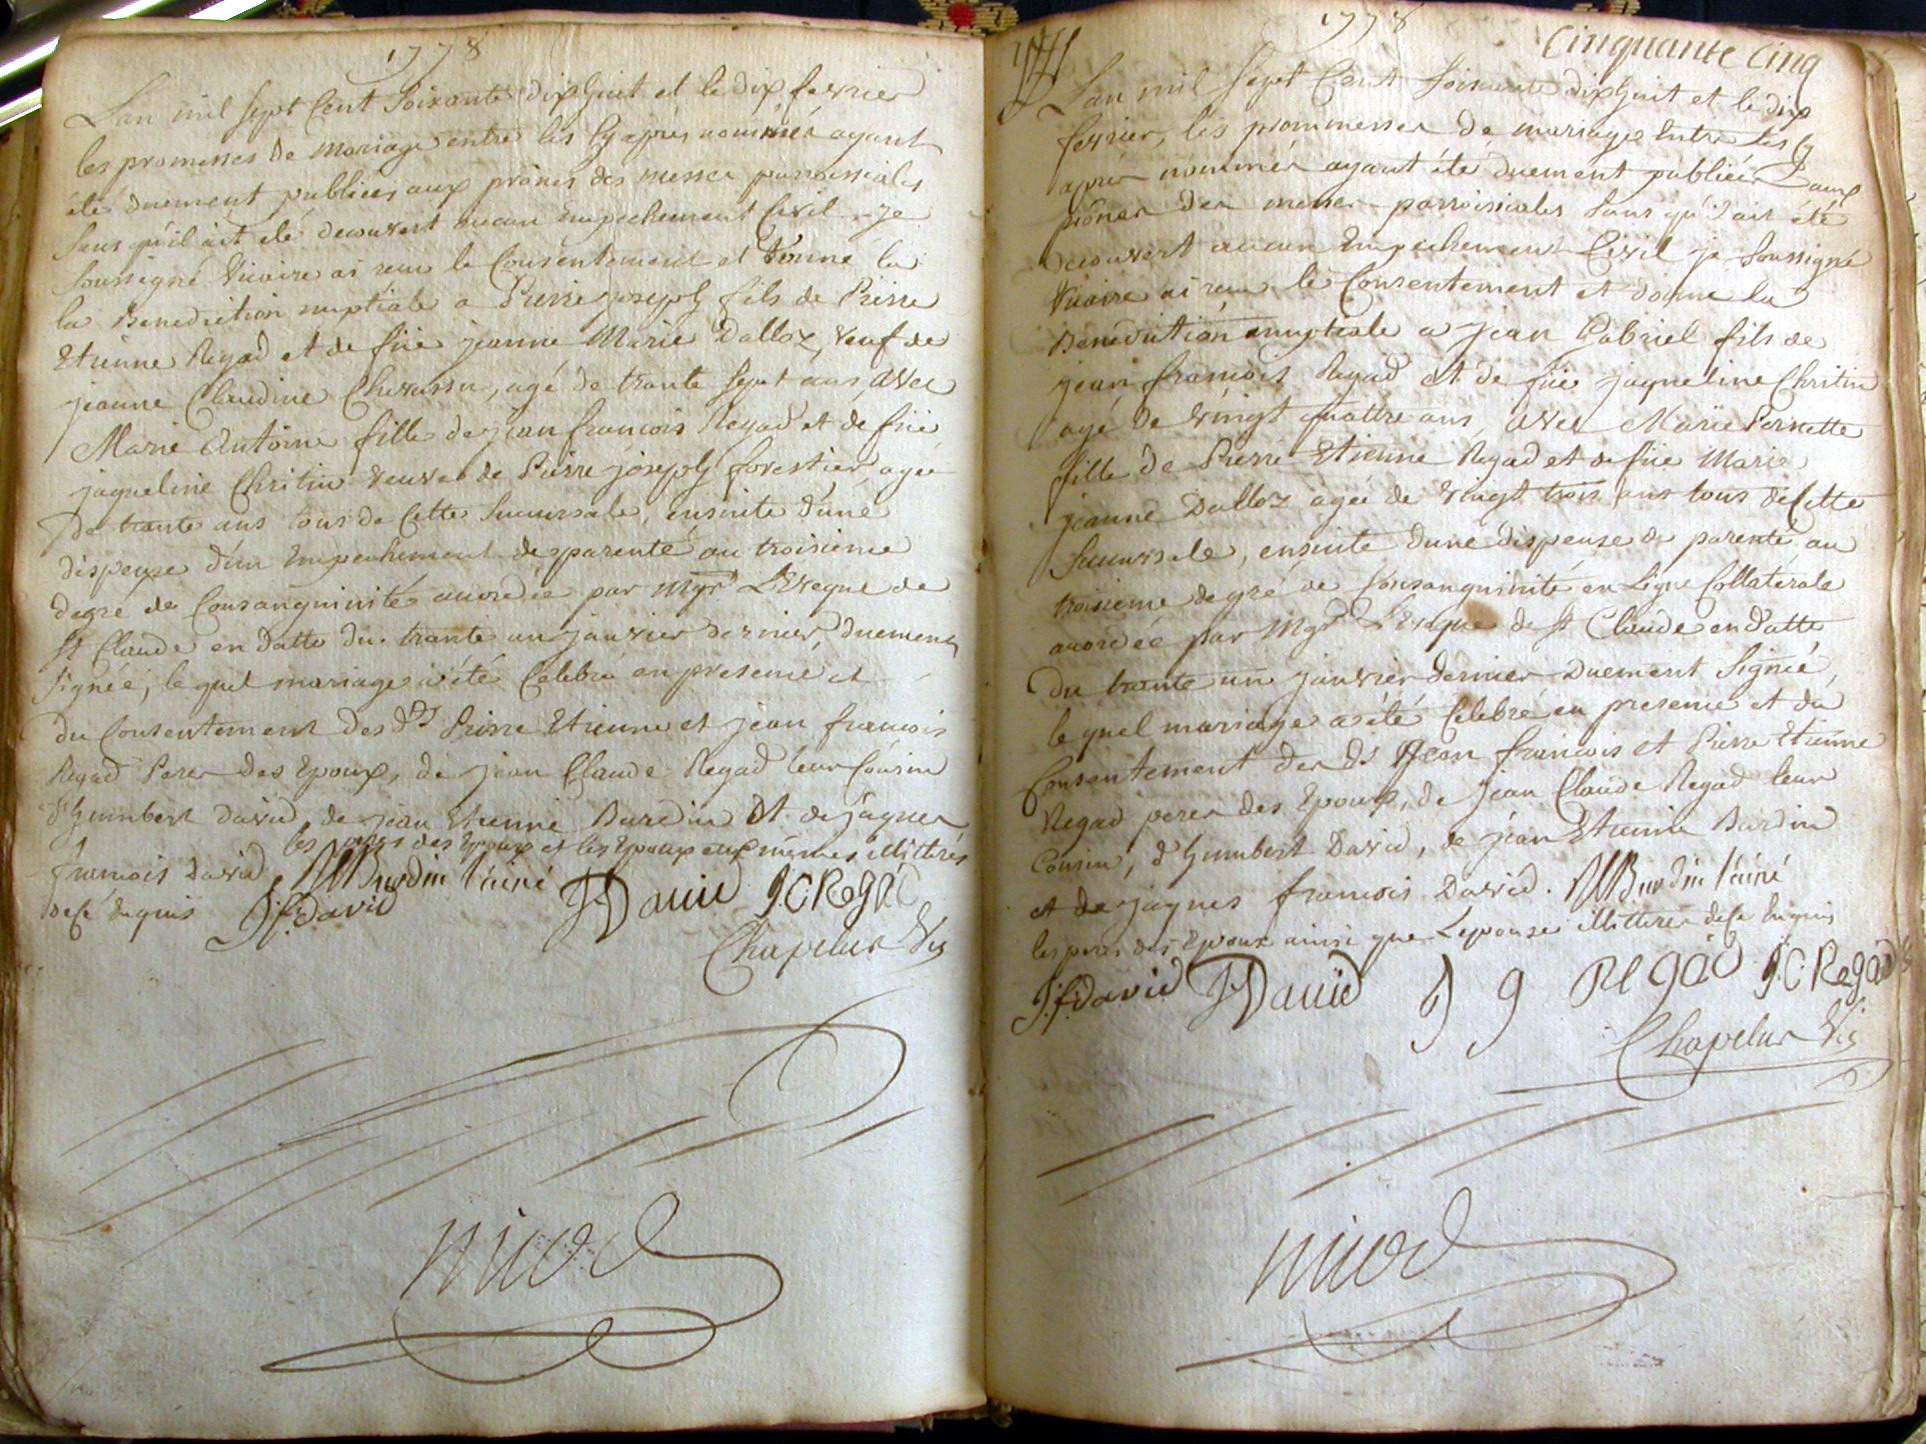 1778
Lan mil sept Cent Soixante dix huit et le dix fevrier
les promesses de mariage entre les cy apres nommés ayant
été duement publiées aux prônes des messes parroissiales
sans qu'il ait été decouvert aucun Empechement Civil je
soussigné Vicaire ai recu le Consentement et donné la
la Benediction nuptiale a Pierre joseph fils de Pierre
Etienne Regad et de füe jeanne Marie Dalloz, veuf de
jeanne Claudine Chevassu, agé de trante sept ans, avec
Marie Antoine fille de jean francois Regad et de füe
jaqueline Chritin veuve de Pierre joseph forestier agée
de trante ans tous de Cette Succursale, ensuite d'une
dispense d'un Empechement de parenté au troisieme
degré de Consanguinité accordée par Mgr L'Eveque de
St Claude en datte du trante un janvier dernier, duement
signée, le quel mariage a été Celebré en presence et
du Consentement des ds Pierre Etienne et jean francois
Regad Peres des Epoux, de jean Claude Regad leur Cousin
d'humbert David, de jean Etienne Burdin et de jâques
francois David les peres des Epoux et les Epoux eux mêmes illittirés
de ce Enquis
Burdin l'ainé
J f. David
J David
J C Regad
Chapelus Vic
nicod
1778
Cinquante Cinq
Lan mil sept Cent Soixante dix huit et le dix
fevrier, les prommesses de mariage Entre les cy
après nommés ayant été duement publiées aux
prônes des messes parroissiales sans qu'il ait été
decouvert aucun Empechement Civil je soussigné
Vicaire ai recu le Consentement et donné la
Benediction nuptiale a jean Gabriel fils de
jean francois Regad et de füe jaqueline Chritin
agé de vingt quattre ans, avec Marie Pernette
fille de Pierre Etienne Regad et de füe Marie
jeanne Dalloz agée de vingt trois ans tous de Cette
Succursale, ensuite d'une dispense de parenté au
troisieme degré de Consanguinité en Ligne Collaterale
accordée par Mgr L'Eveque de St Claude en datte
du trante un janvier dernier duement Signée,
le quel mariage a été Celebré en presence et du
Consentement des ds jean francois et Pierre Etienne
Regad peres des Epoux, de jean Claude Regad leur
Cousin, d'humbert David, de jean Etienne Burdin
et de jâques francois David. Burdin l'ainé
les peres des Epoux ainsi que Lepouse illittirés de ce Enquis
J. f. David
J David
J g Regad
J. C. Regad
Chapelus Vic
nicod